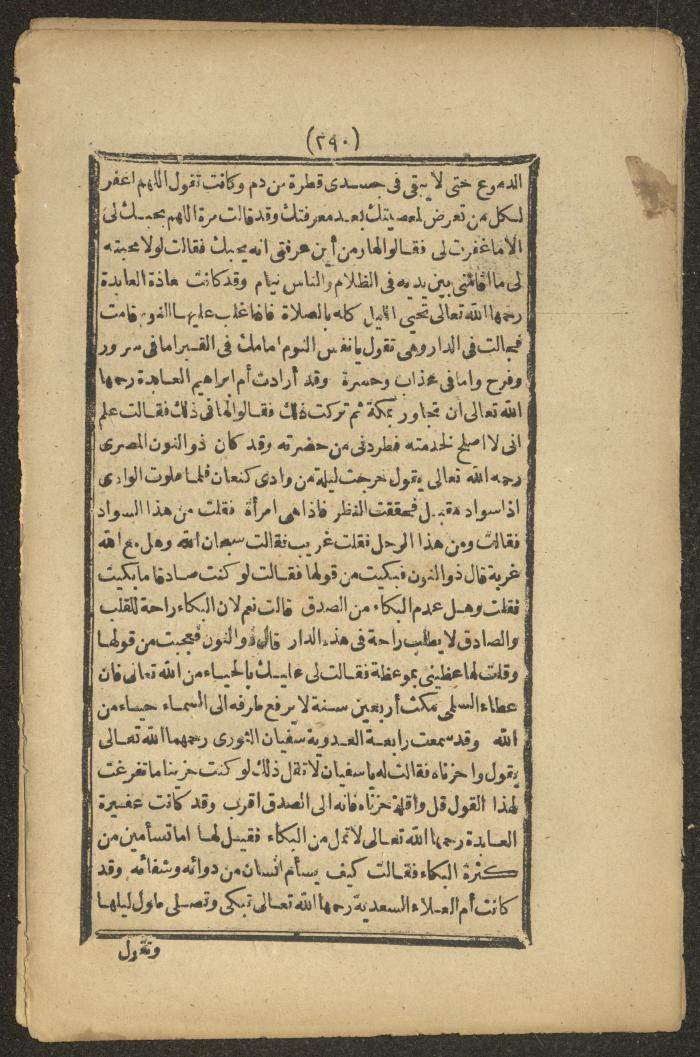 (٢٩٠)
الدموع حتى لا يبقى فى جسدى قطرة من دم وكانت تقول اللهم اغفر
لكل من تعرض لمعصيتك بعد معرفتك وقد قالت مرة اللهم بحبك لى
الا ما غفرت لى فقالوا لها ومن أين عرفتى انه يحبك فقالت لولا محبته
لى ما أقامنى بين يديه فى الظلام والناس نيام وقد كانت معاذة العابدة
رحمها الله تعالى تحيى الليل كله بالصلاة فاذا غلب عليها النوم قامت
فجالت فى الدار وهى تقول يا نفس النوم امامك فى القبر اما فى سرور
وفرح واما فى عذاب وحسرة وقد أرادت أم ابراهيم العابدة رحمها
الله تعالى ان تجاور بمكة ثم تركت ذلك فقالوا لها فى ذلك فقالت علم
انى لا اصلح لخدمته فطردنى من حضرته وقد كان ذو النون المصرى
رحمه الله تعالى يقول خرجت ليلة من وادى كنعان فلما علوت الوادى
اذا سواد مقبل فحققت النظر فاذا هى امرأة فقلت من هذا السواد
فقالت ومن هذا الرجل فقلت غريب فقالت سبحان الله وهل مع الله
غربة قال ذو النون فبكيت من قولها فقالت لو كنت صادقا ما بكيت
فقلت وهل عدم البكاء من الصدق قالت نعم لان البكاء راحة للقلب
والصادق لا يطلب راحة فى هذه الدار قال ذو النون فعجبت من قولها
وقلت لها عظينى بموعظة فقالت لى عليك بالحياء من الله تعالى فان
عطاء السلمى مكث أربعين سنة لا يرفع طرفه الى السماء حياء من
الله وقد سمعت رابعة العدوية سفيان الثورى رحمهما الله تعالى
يقول وا حزناه فقالت له يا سفيان لا تقل ذلك لو كنت حزينا ما تفرغت
لهذا القول قل وا قلة حزناه فانه الى الصدق اقرب وقد كانت عفيرة
العابدة رحمها الله تعالى لا تمل من البكاء فقيل لها اما تسأمين من
كثرة البكاء فقالت كيف يسأم انسان من دوائه وشفائه وقد
كانت أم العلاء السعدية رحمها الله تعالى تبكى وتصلى طول ليلها
وتقول